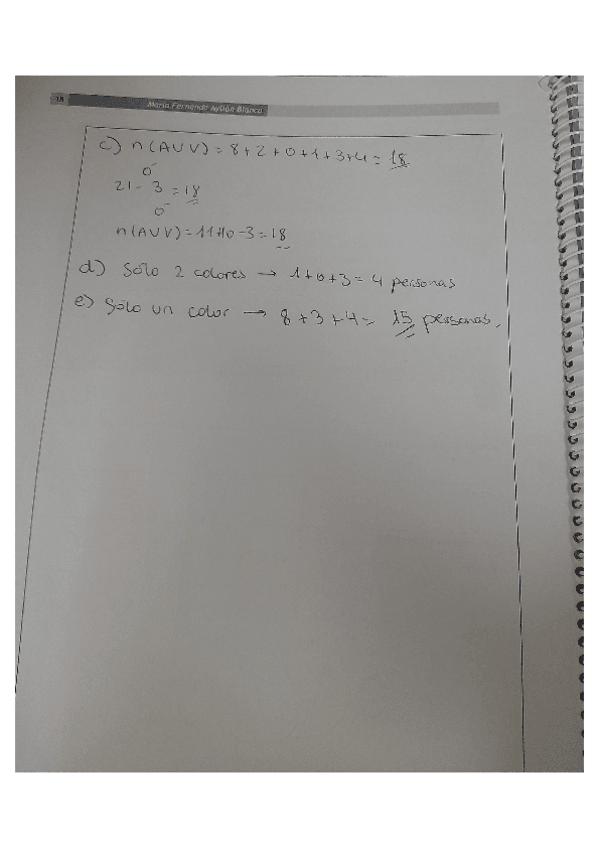 18
María Fernanda Ayllón Blanco
c) n(AUV) = 8+2+0+1+3+4 = 18
o
21 - 3 = 18
o
n(AUV) = 11+10-3 = 18
d) Sólo 2 colores → 1+0+3 = 4 personas
e) Sólo un color → 8+3+4 = 15 personas.